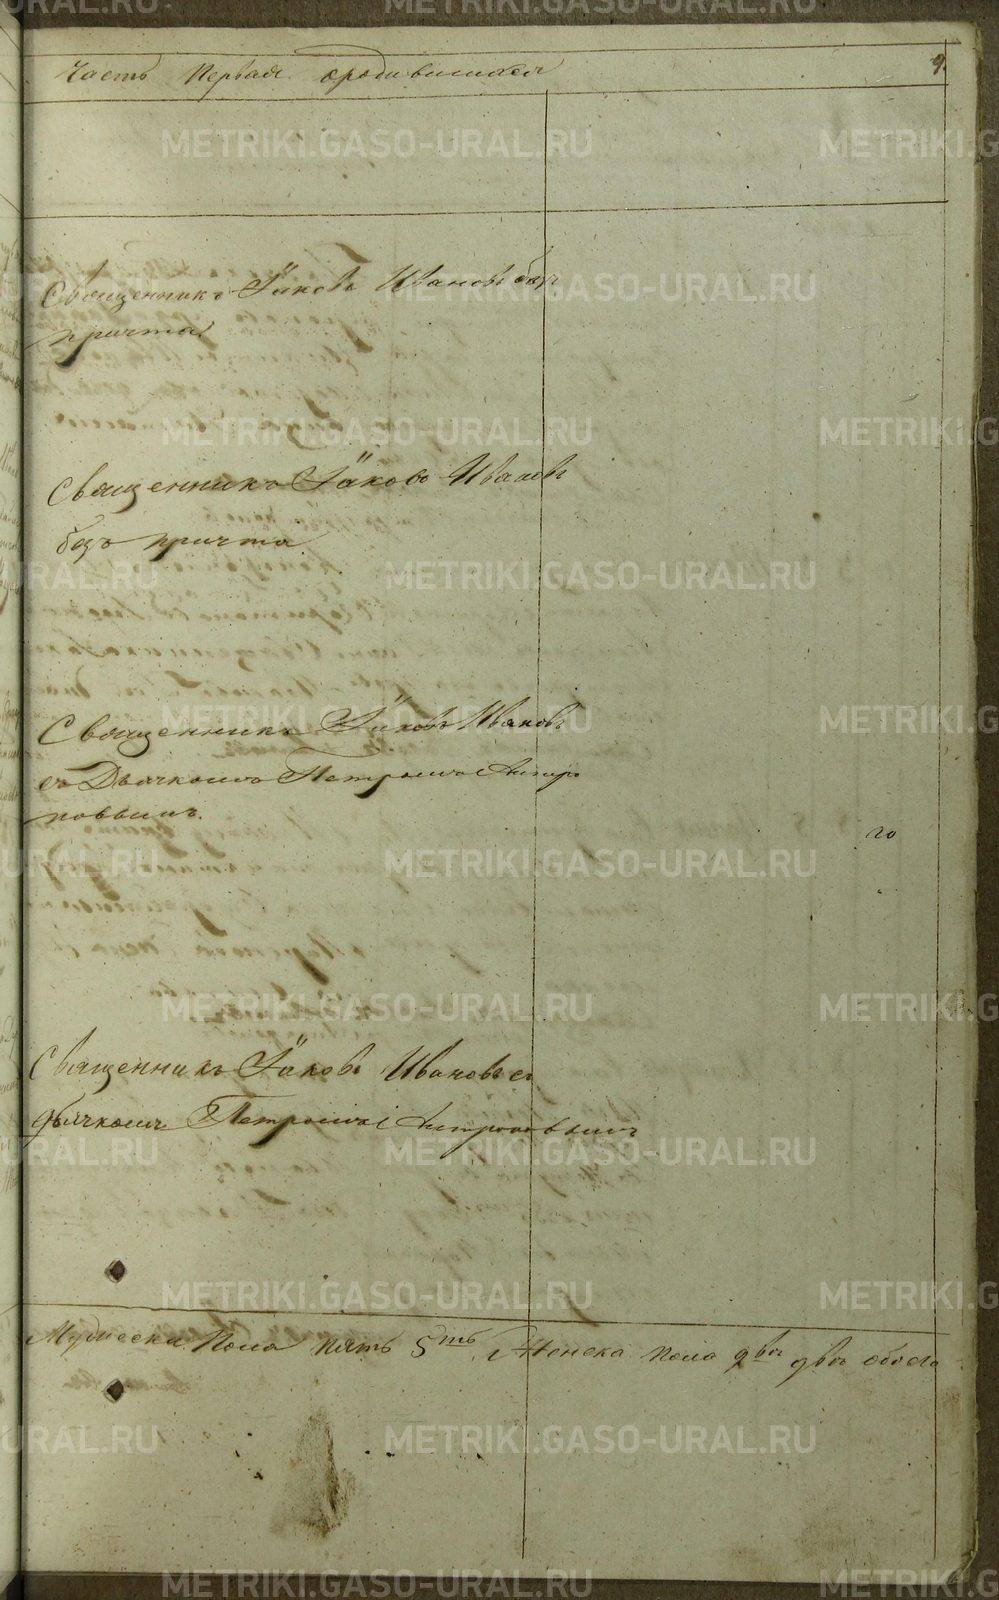 Часть первая ородившихся
9.
Священникъ Іаковъ Ивановъ безъ
причта
Священникъ Іаковъ Ивановъ
безъ причта
Священникъ Іаковъ Ивановъ
съ Дьячкомъ Петромъ Антро
повымъ.
го
Священникъ Іаковъ Ивановъ съ
дьячкомъ Петромъ Антроповымъ
Мужеска Пола пять 5ть Женска пола два обоего
METRIKI.GASO-URAL.RU